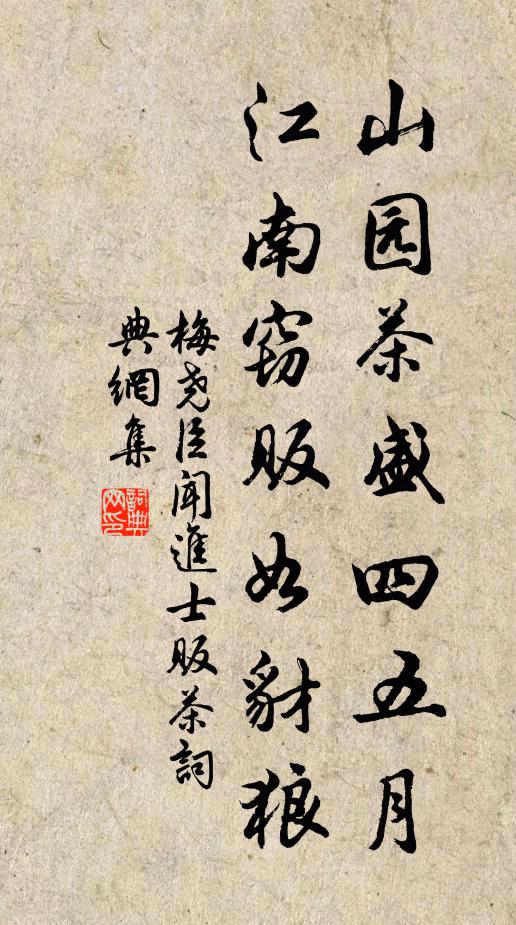 山园茶盛四五月
江南窃贩如豺狼
梅尧臣闻進士贩茶詞
典網集
詞典
网印